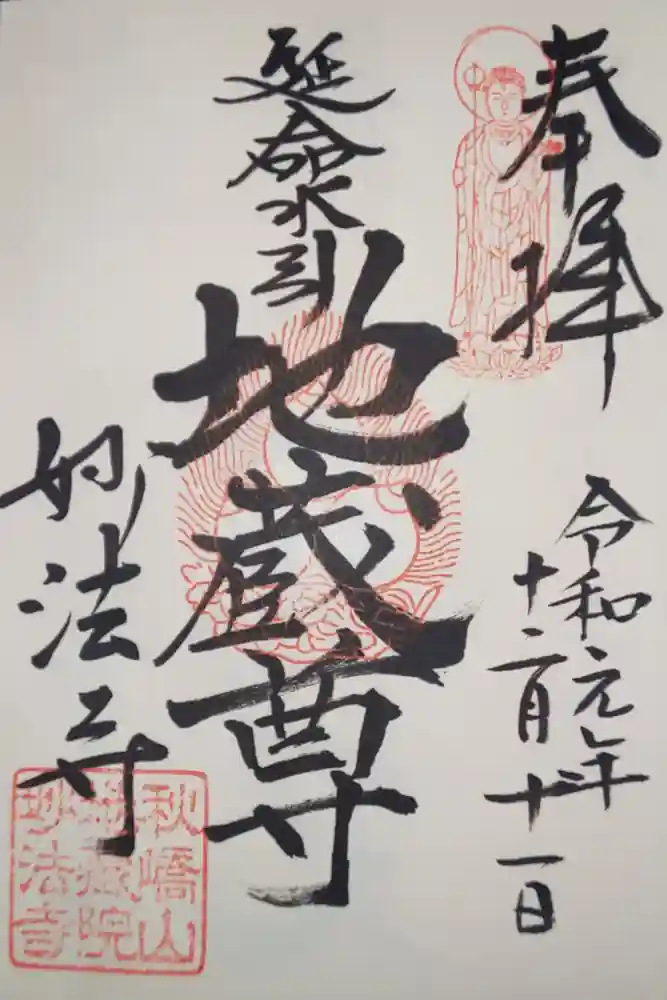 奉拝
令和元年
十二月十一日
延命水引
地蔵尊
妙法寺
秋嶠山
院
妙法寺